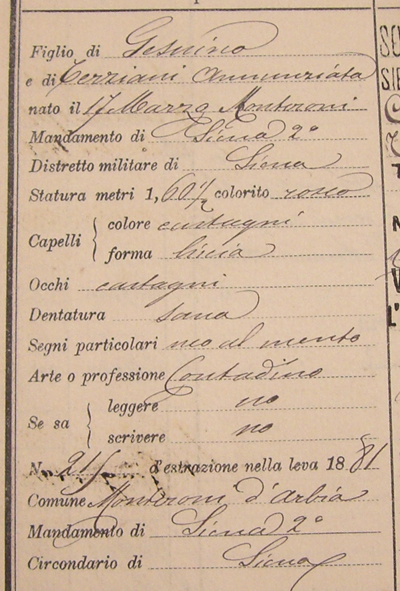 Figlio di Gesuino
e di Terziani Annunziata
nato il 17 Marzo Monteroni
Mandamento di Siena 2°
Distretto militare di Siena
Statura metri 1, 60 1/2 colorito roseo
Capelli { colore castagni
forma liscia
Occhi castagni
Dentatura sana
Segni particolari neo al mento
Arte o professione Contadino
Se sa { leggere no
scrivere no
N. 21 d'estrazione nella leva 1881
Comune Monteroni d'Arbia
Mandamento di Siena 2°
Circondario di Siena